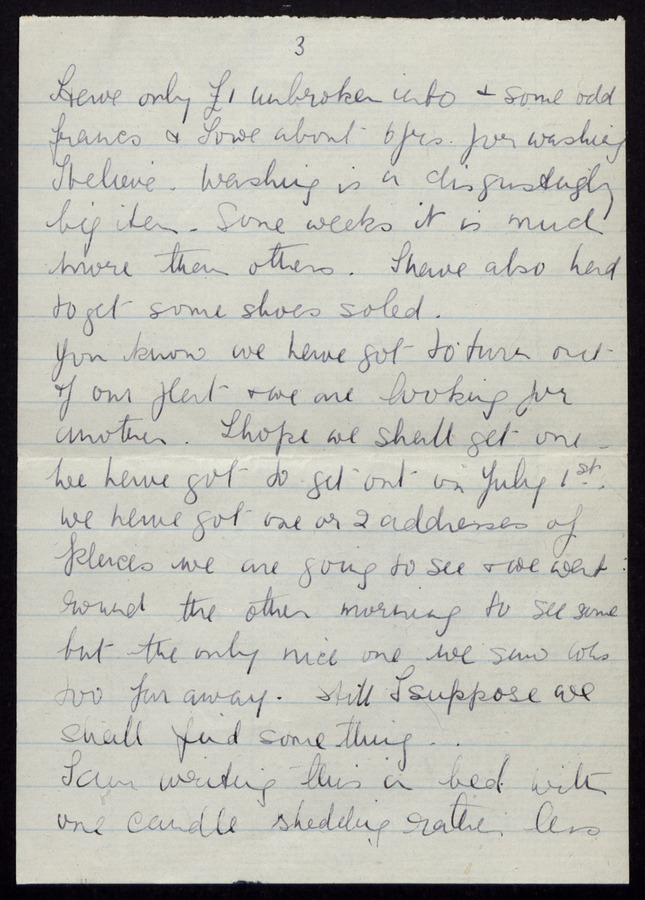 3
I have only £1 unbroken into + some odd
francs & I owe about 6 frs. for washing
I believe. Washing is a disgustingly
big item. Some weeks it is much
more than others. I have also had
to get some shoes soled.
You know we have got to turn out
of our flat & we are looking for
another. I hope we shall get one -
we have got to get out on July 1st.
We have got one or 2 addresses of
places we are going to see & we went
round the other morning to see some
but the only nice one we saw was
too far away. Still I suppose we
shall find something..
I am writing this in bed with
one candle shedding rather less